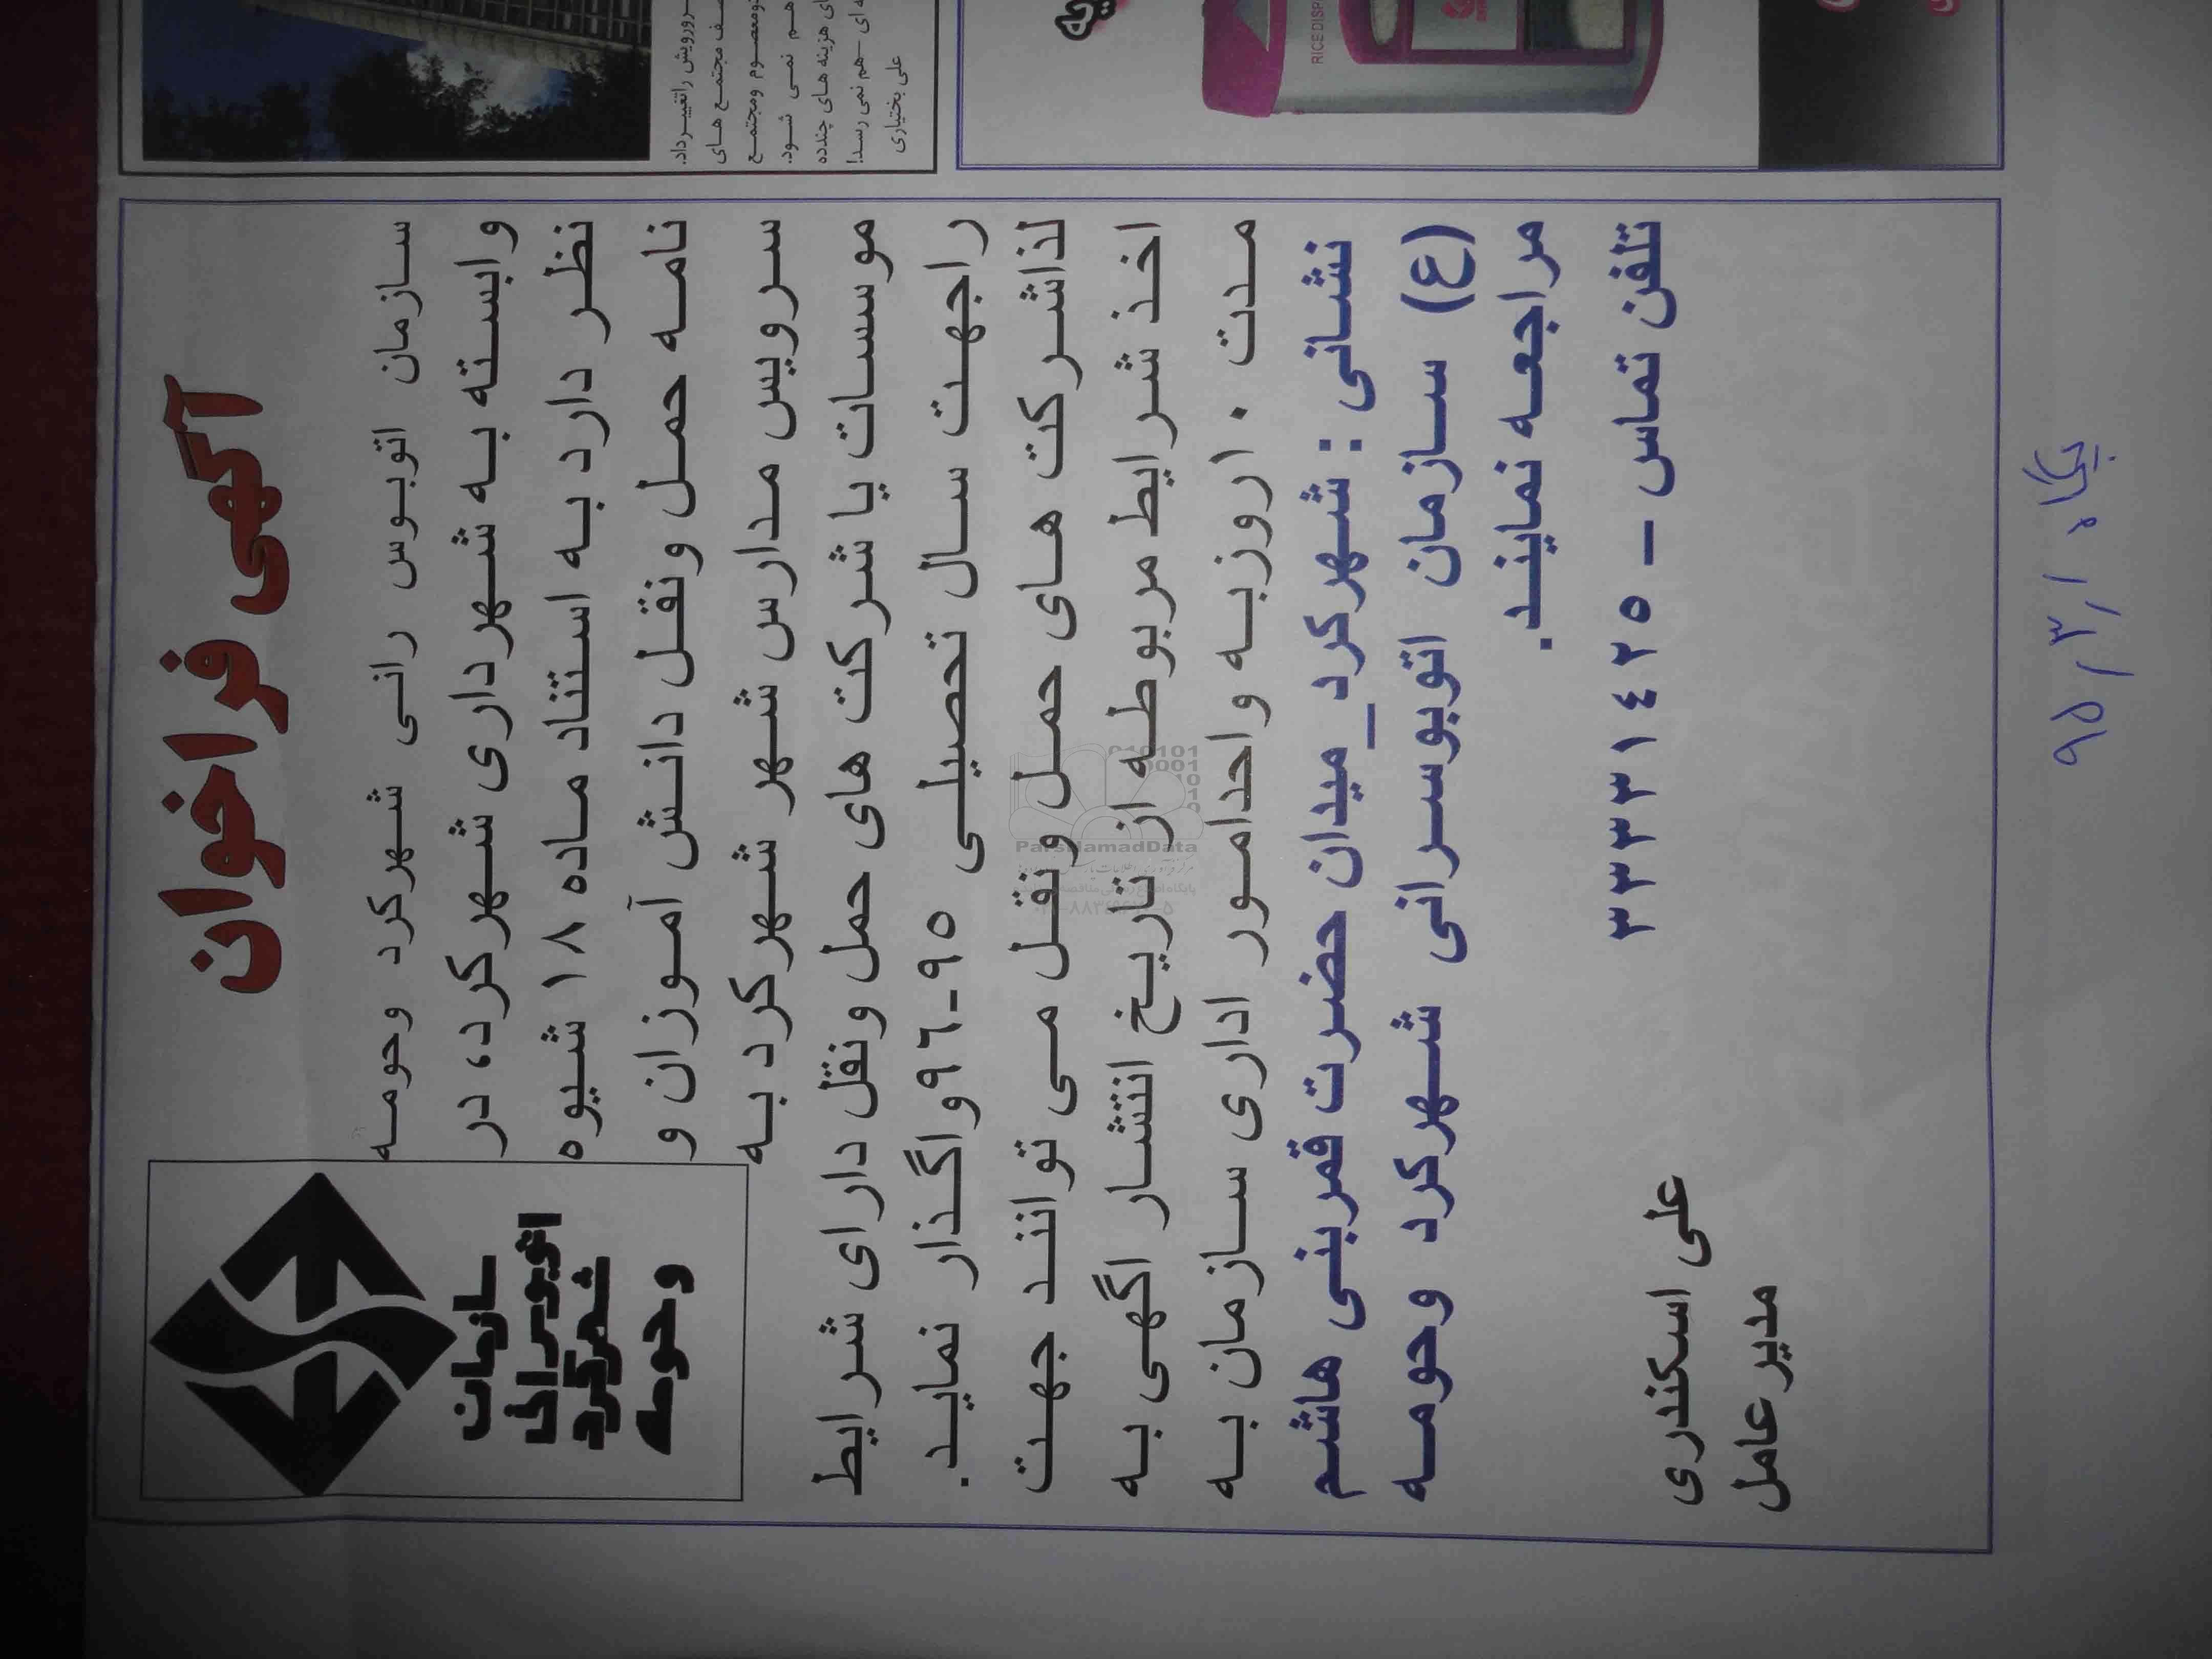 آگهی فراخوان
سازمان
اتوبوسرانی
شهرکرد
و حومه
سازمان اتوبوس رانی شهرکرد وحومه
وابسته به شهرداری شهرکرد، در
نظر دارد به استناد ماده ۱۸ شیوه
نامه حمل ونقل دانش آموزان و
سرویس مدارس شهر شهرکرد به
موسسات یا شرکت های حمل ونقل دارای شرایط
راجهت سال تحصیلی ۹۵-۹۶واگذار نماید.
لذاشرکت های حمل ونقل می توانند جهت
اخذ شرایط مربوطه از تاریخ انتشار اگهی به
مدت ۱۰روزبه واحدامور اداری سازمان به
نشانی : شهرکرد_میدان حضرت قمربنی هاشم
(ع) سازمان اتوبوسرانی شهرکرد وحومه
مراجعه نمایند.
تلفن تماس – ۳۳۳۳۱۴۲۵
علی اسکندری
مدیرعامل
پگاه ۹۵/۳/۱
رورویش راتغییرداد.
صف مجتمع های
ومعصوم ومجتمع
هم نمی شود.
ای هزینه های چندده
ه ای -هم نمی رسد!
علی بختیاری
RICE DISP
ParsNamadData